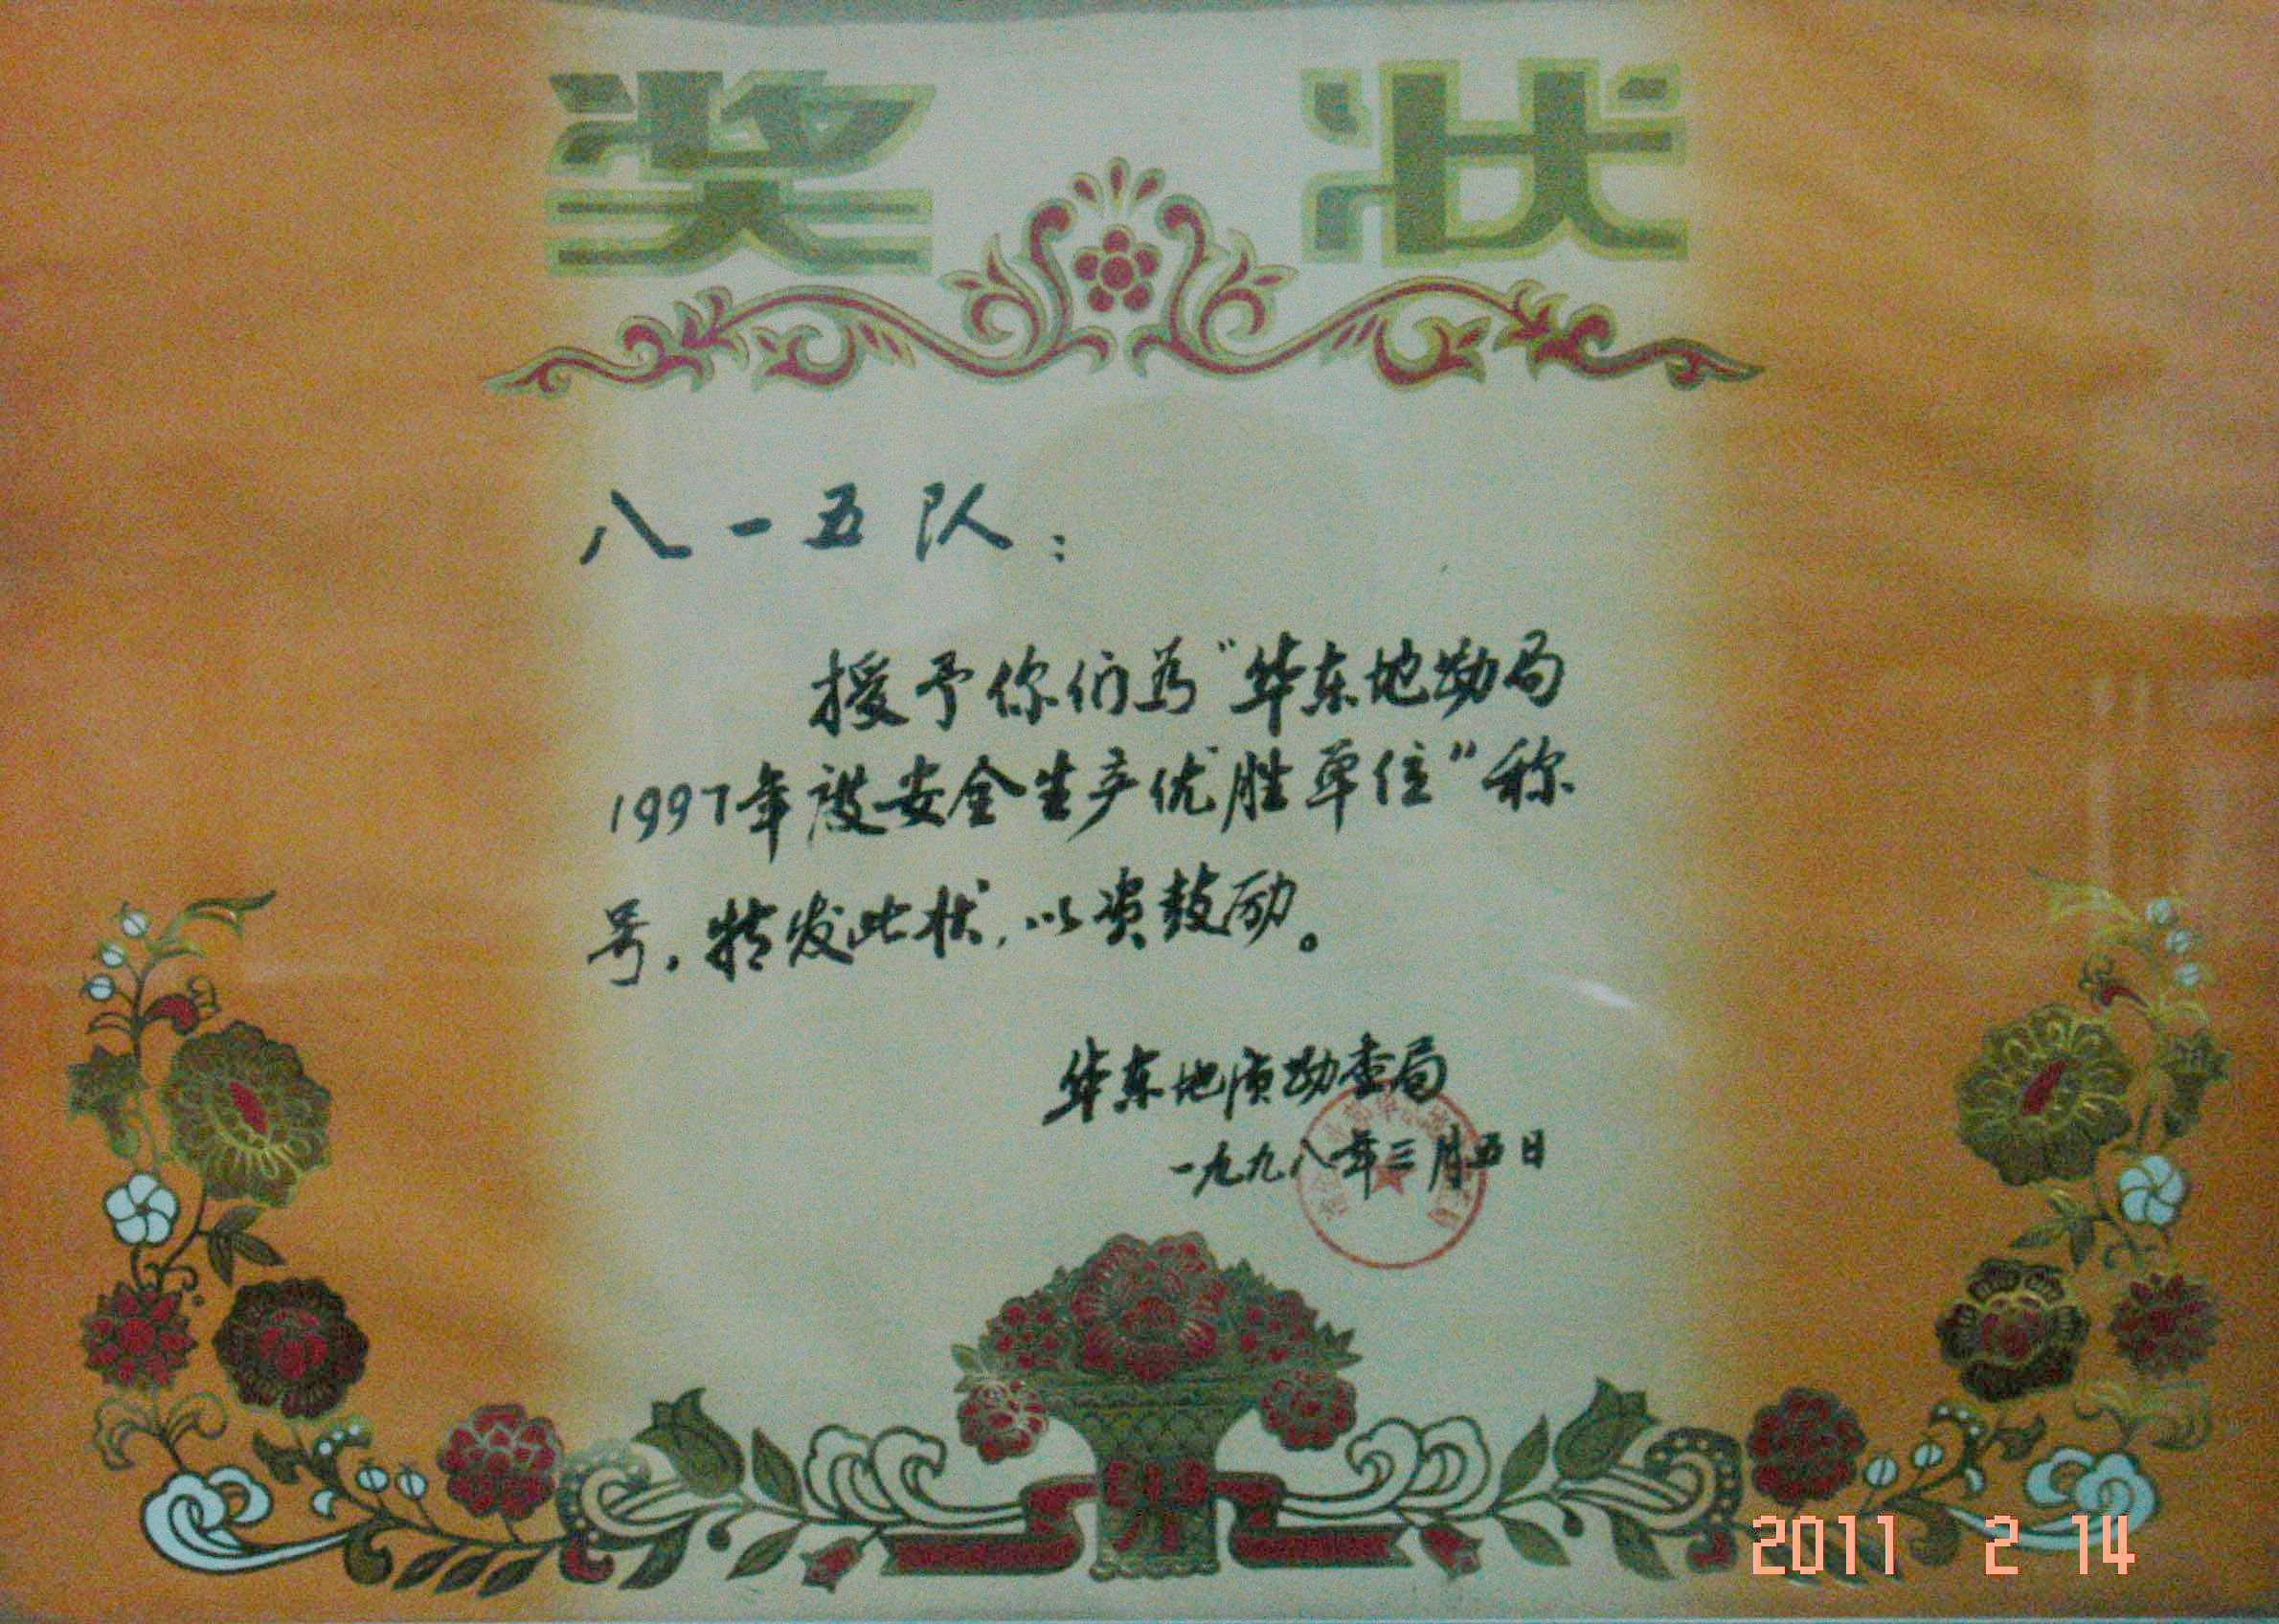 奖状
八一五队：
授予你们为“华东地勘局
1997年度安全生产优胜单位”称
号，特发此状，以资鼓励。
华东地质勘查局
一九九八年三月五日
2011 2 14